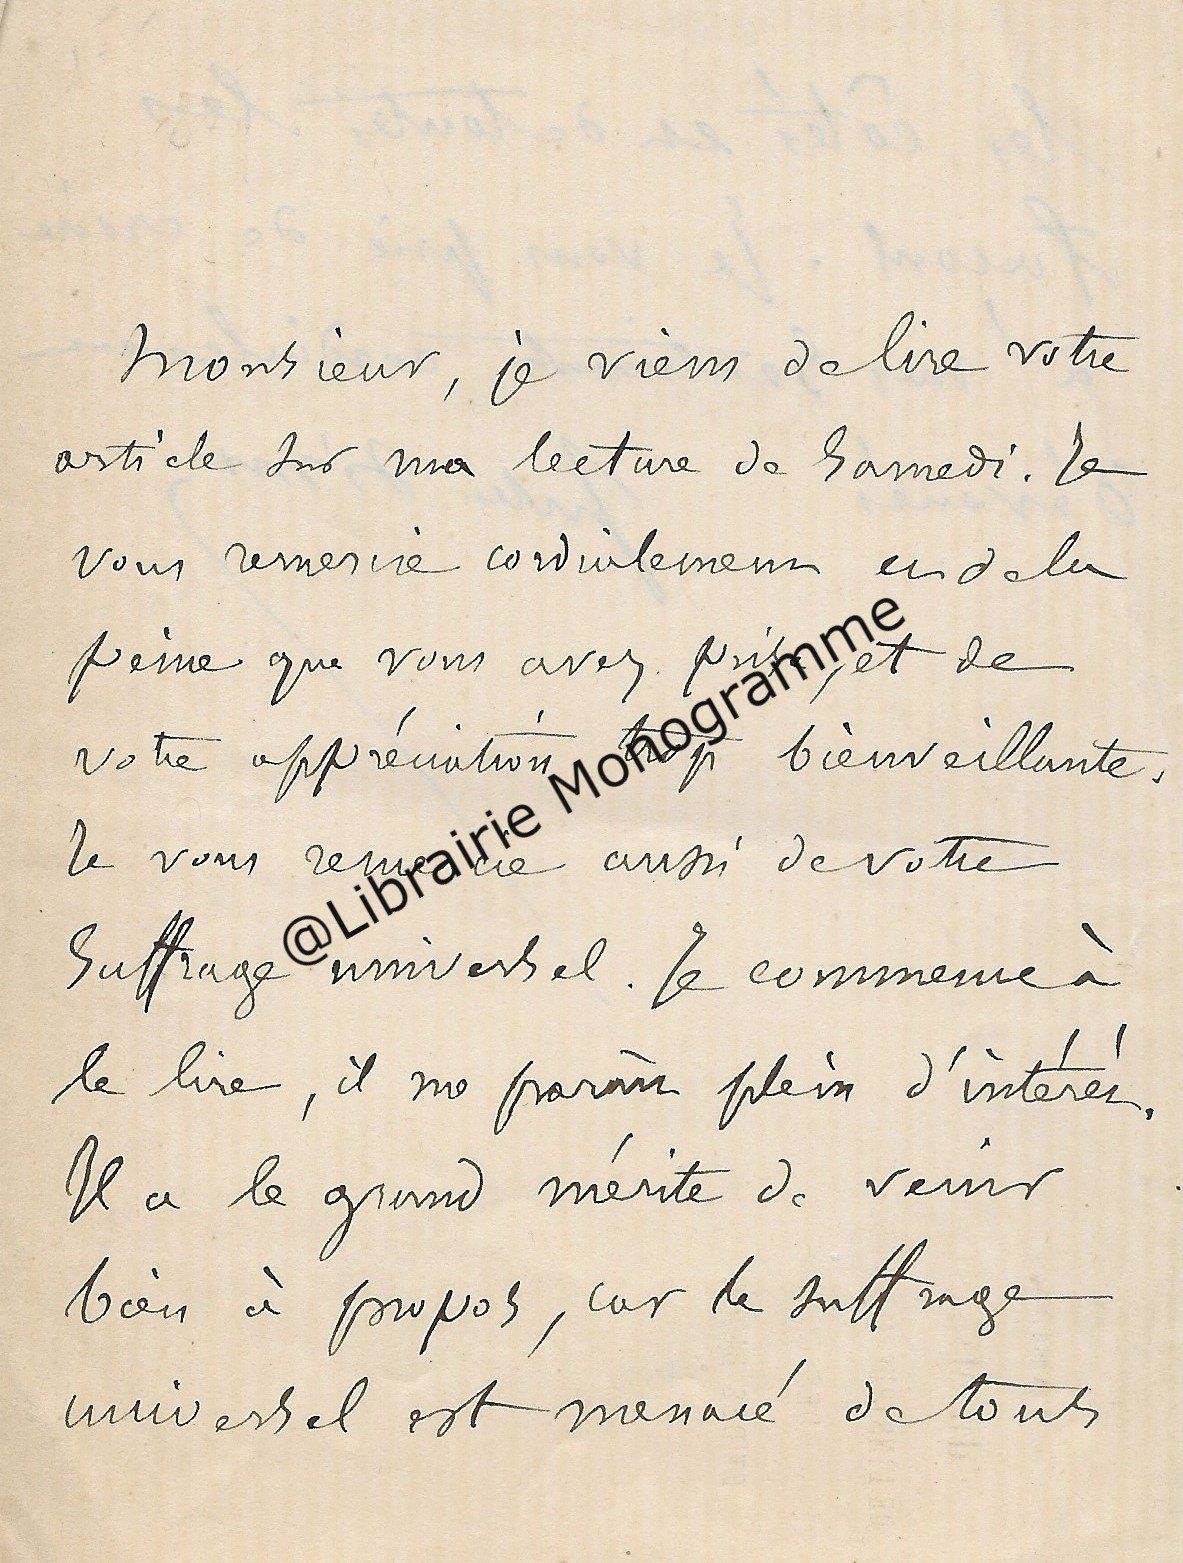 Monsieur, je viens de lire votre
article sur ma lecture de Samedi. Je
vous remercie cordialement et de la
peine que vous avez prise, et de
votre appréciation trop bienveillante.
Je vous remercie aussi de votre
Suffrage universel. Je commence à
le lire, il me paraît plein d'intérêt.
Il a le grand mérite de venir
bien à propos, car le suffrage
universel est menacé de tous
@Librairie Monogramme